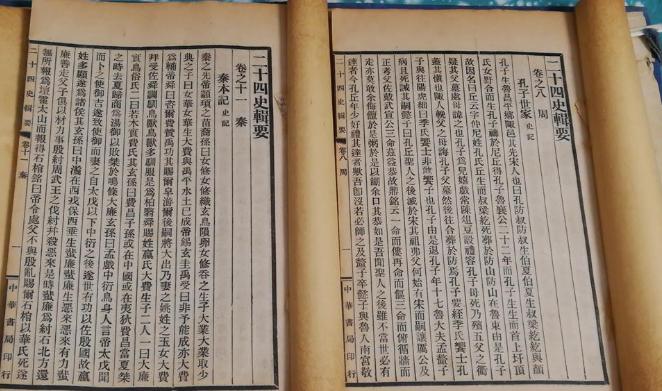 二十四史輯要
卷之八 周
孔子世家 史記
孔子生魯昌平鄉陬邑其先宋人也曰孔防叔防叔生伯夏伯夏生叔梁紇紇與顏
氏女野合而生孔子禱於尼丘得孔子魯襄公二十二年而孔子生生而首上圩頂
故因名曰丘云字仲尼姓孔氏丘生而叔梁紇死葬於防山防山在魯東由是孔子
疑其父墓處母諱之也孔子為兒嬉戲常陳俎豆設禮容孔子母死乃殯五父之衢
蓋其慎也陬人輓父之母誨孔子父墓然後往合葬於防焉孔子要絰季氏饗士孔
子與往陽虎絀曰季氏饗士非敢饗子也孔子由是退孔子年十七魯大夫孟釐子
病且死誡其嗣懿子曰孔丘聖人之後滅於宋其祖弗父何始有宋而嗣讓厲公及
正考父佐戴武宣公三命茲益恭故鼎銘云一命而僂再命而傴三命而俯循牆而
走亦莫敢余侮饘於是粥於是以餬余口其恭如是吾聞聖人之後雖不當世必有
達者今孔丘年少好禮其達者歟吾即沒若必師之及釐子卒懿子與魯人南宮敬
二十四史輯要 卷八 周 一 中華書局印行
二十四史輯要
卷之十一 秦
秦本記 史記
秦之先帝顓頊之苗裔孫曰女修女修織玄鳥隕卵女修吞之生子大業大業取少
典之子曰女華女華生大費與禹平水土已成帝錫玄圭禹受曰非予能成亦大費
為輔帝舜曰咨爾費贊禹功其賜爾皁游爾後嗣將大出乃妻之姚姓之玉女大費
拜受佐舜調馴鳥獸鳥獸多馴服是為柏翳舜賜姓嬴氏大費生子二人一曰大廉
實鳥俗氏二曰若木實費氏其玄孫曰費昌子孫或在中國或在夷狄費昌當夏桀
之時去夏歸商為湯御以敗桀於鳴條大廉玄孫曰孟戲中衍鳥身人言帝太戊聞
而卜之使御吉遂致使御而妻之自太戊以下中衍之後遂世有功以佐殷國故嬴
姓多顯遂為諸侯其玄孫曰中潏在西戎保西垂生蜚廉蜚廉生惡來惡來有力蜚
廉善走父子俱以材力事殷紂周武王之伐紂并殺惡來是時蜚廉為紂石北方還
無所報為壇霍太山而報得石棺銘曰帝令處父不與殷亂賜爾石棺以華氏死遂
二十四史輯要 卷十一 秦 一 中華書局印行